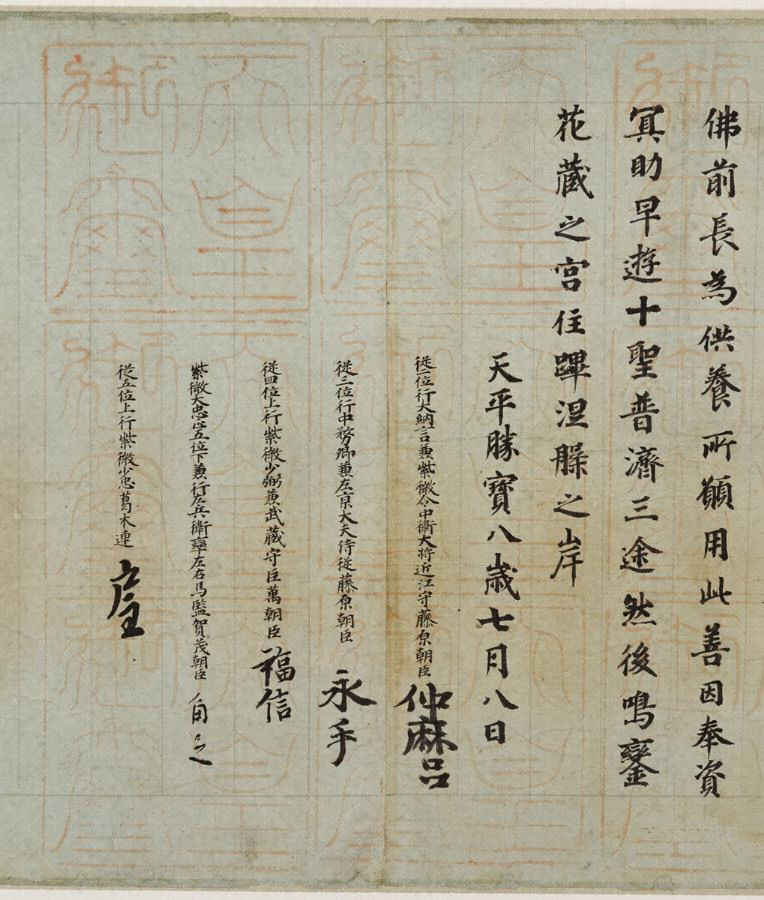 佛前長為供養所願用此善因奉資
冥助早遊十聖普濟三途然後鳴鑾
花蔵之宮住蹕涅槃之岸
天平勝寶八歲七月八日
從二位行大納言兼紫微令中衛大将近江守藤原朝臣仲麻呂
從三位行中務卿兼左京大夫侍從藤原朝臣永手
從四位上行紫微少弼兼武蔵守巨萬朝臣福信
紫微大忠正五位下兼行左兵衛率左右馬監賀茂朝臣角足
從五位上行紫微少忠葛木連戶主
天皇御璽